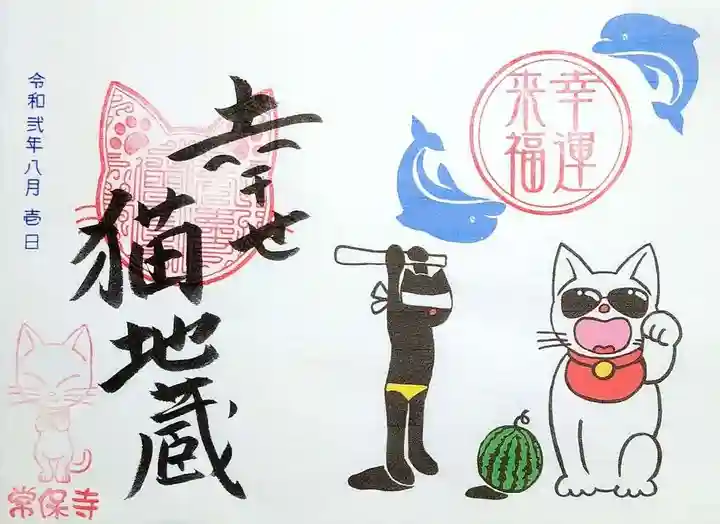 幸運
来福
幸せ
猫地蔵
令和弐年八月壱日
常保寺